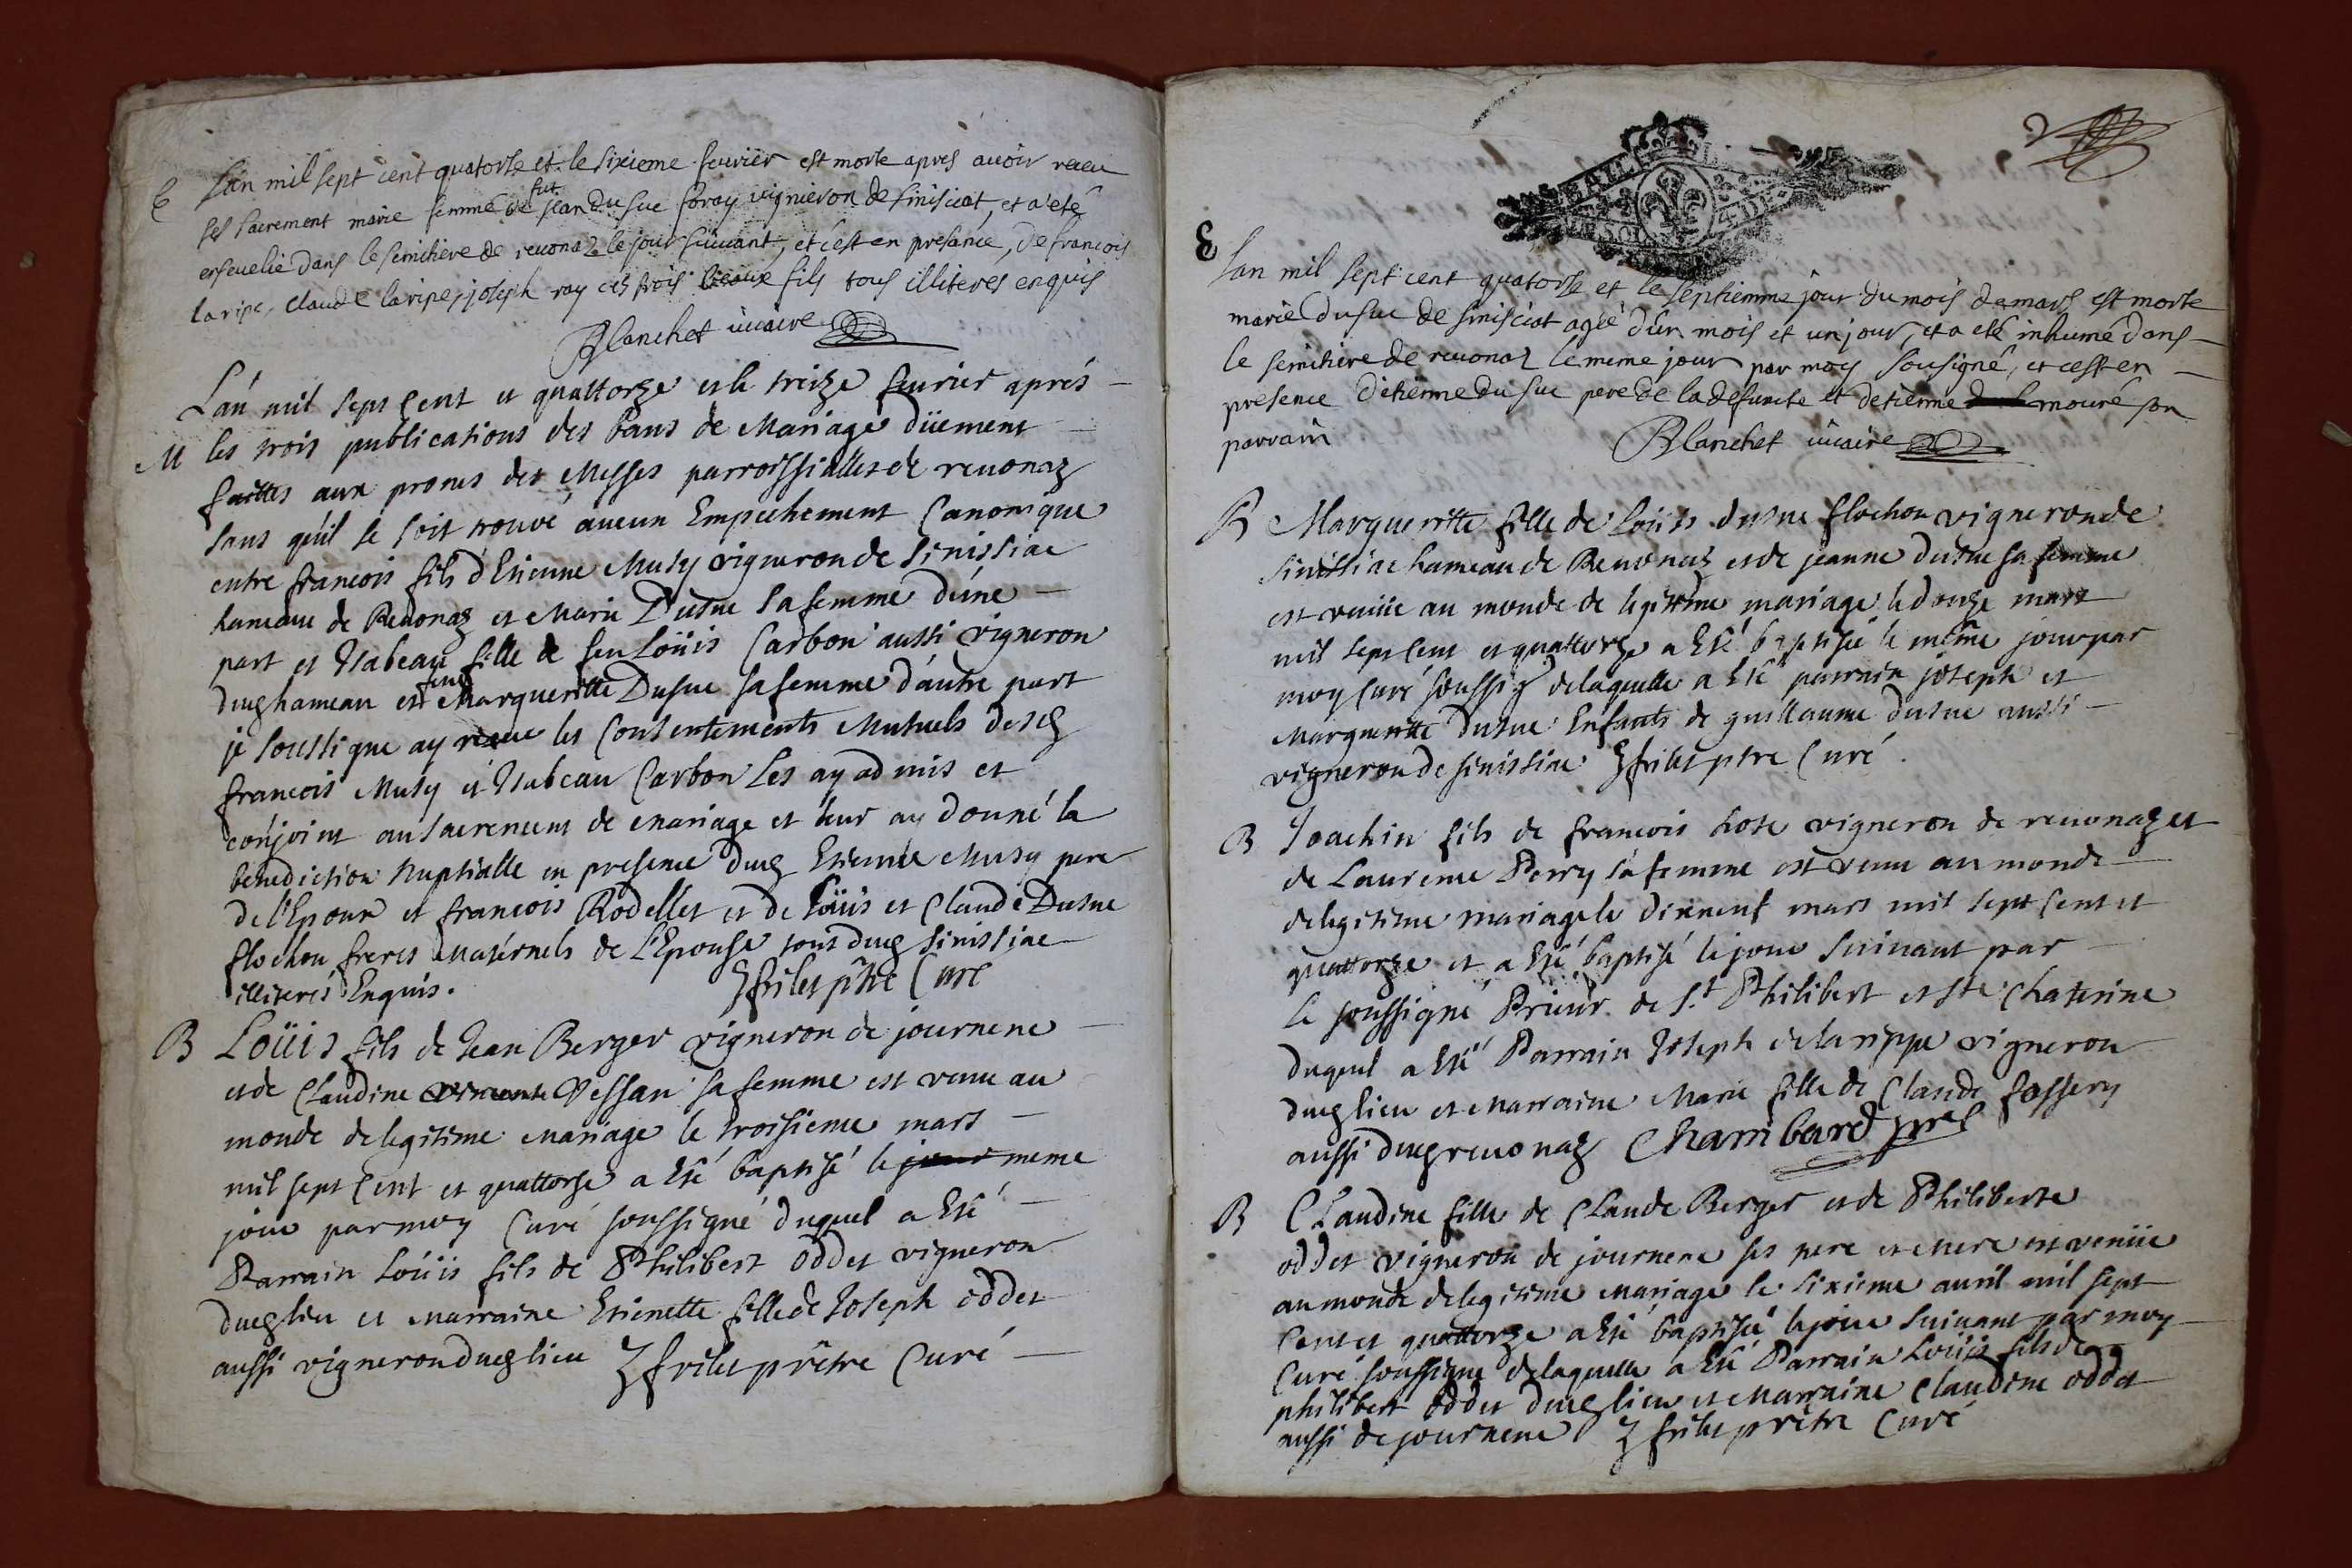 E
lan mil sept cent quatorse et le sixieme feuvier est morte apres auoir receu
ses sacrement marie femme de fut jean du suc foray vignieron de sinisciat, et a eté
enseuelie dans le semitiere de reuonaz le jour suiuant, et c'est en presance, de francois
laripe, claude laripe, joseph ray ces trois beaux fils tous illiteres enquis
Blanchet uicaire
L'an mil sept Cent et quattorze et le treize feurier aprés
M les trois publications des bans de Mariage düement
faittes aux prones des Messes parroissialles de reuonaz
sans qu'il se soit trouvé aucun Empechement Canonique
entre francois fils d'Etienne Musy vigneron de Sinissiac
hameau de Reuonaz et Marie Dusuc sa femme d'une
part et Isabeau fille de feu Loüis Carbon aussi vigneron
dud hameau et feue Margueritte Dusuc sa femme d'autre part
je soussigne ay receu les Consentements Mutuels desd
francois Musy et Isabeau Carbon Les ay admis et
conjoint au sacrement de mariage et leur ay donné la
benediction Nuptialle en presence dud Etienne Musy pere
de l'Epoux et francois Rodellet et de Loüis et Claude Dusuc
flochon freres Maternels de L'Epouse tous dud Sinissiac
illiterés Enquis. frilet ptre Curé
B Loüis fils de Jean Berger vigneron de journene
et de Claudine Vessau sa femme est venu au
monde de legitime Mariage le troisieme mars
mil sept Cent et quattorse a Esté baptisé le jour meme
jour par moy Curé soussigné duquel a Esté
Parrain Loüis fils de Philibert oddet vigneron
dud lieu et Marraine Etienette fille de Joseph oddet
aussi vigneron dud lieu frilet prêtre Curé
E
lan mil sept cent quatorse et le septiemme jour du mois de mars est morte
marie dusuc de sinisciat agée d'un mois et un jour, et a eté inhumé dans
le semitiere de reuonaz le meme jour par moy sousigné, et c'est en
presence d'etienne du suc pere de la defuncte et d'etienne mouré son
parrain Blanchet uicaire
B Margueritte fille de Loüis dusuc flochon vigneron de
sinissiac hameau de Reuonaz et de jeanne dusuc sa femme
est venüe au monde de legitime mariage le douze mars
mil sept Cent et quattorze a Esté baptisée le même jour par
moy Curé soussig delaquelle a Esté parrain joseph et
Marguerite dusuc Enfants de guillaume dusuc aussi
vigneron de sinissiac frilet ptre Curé.
B Joachin fils de francois hote vigneron de reuonaz et
de Laurence Perry sa femme est venu au monde
de legitime mariage le dixneuf mars mil sept Cent et
quattorze et a Esté baptisé le jour suiuant par
le soussigné Prieur de S.t Philibert et Ste Chaterine
duquel a Esté Parrain Joseph delarippe vigneron
dud lieu et Marraine Marie fille de Claude fassery
aussi dud reuonaz Chambard
B CLaudine fille de Claude Berger et de Philiberte
oddet vigneron de journene ses pere et Mere est venüe
au monde de legitime Mariage le sixieme auril mil sept
Cent et quattorze a Esté baptisée le jour suiuant par moy
Curé soussigne delaquelle a Esté Parrain Loüis fils de
philibert oddet dud lieu et Marraine Claudine oddet
aussi de journene frilet prêtre Curé